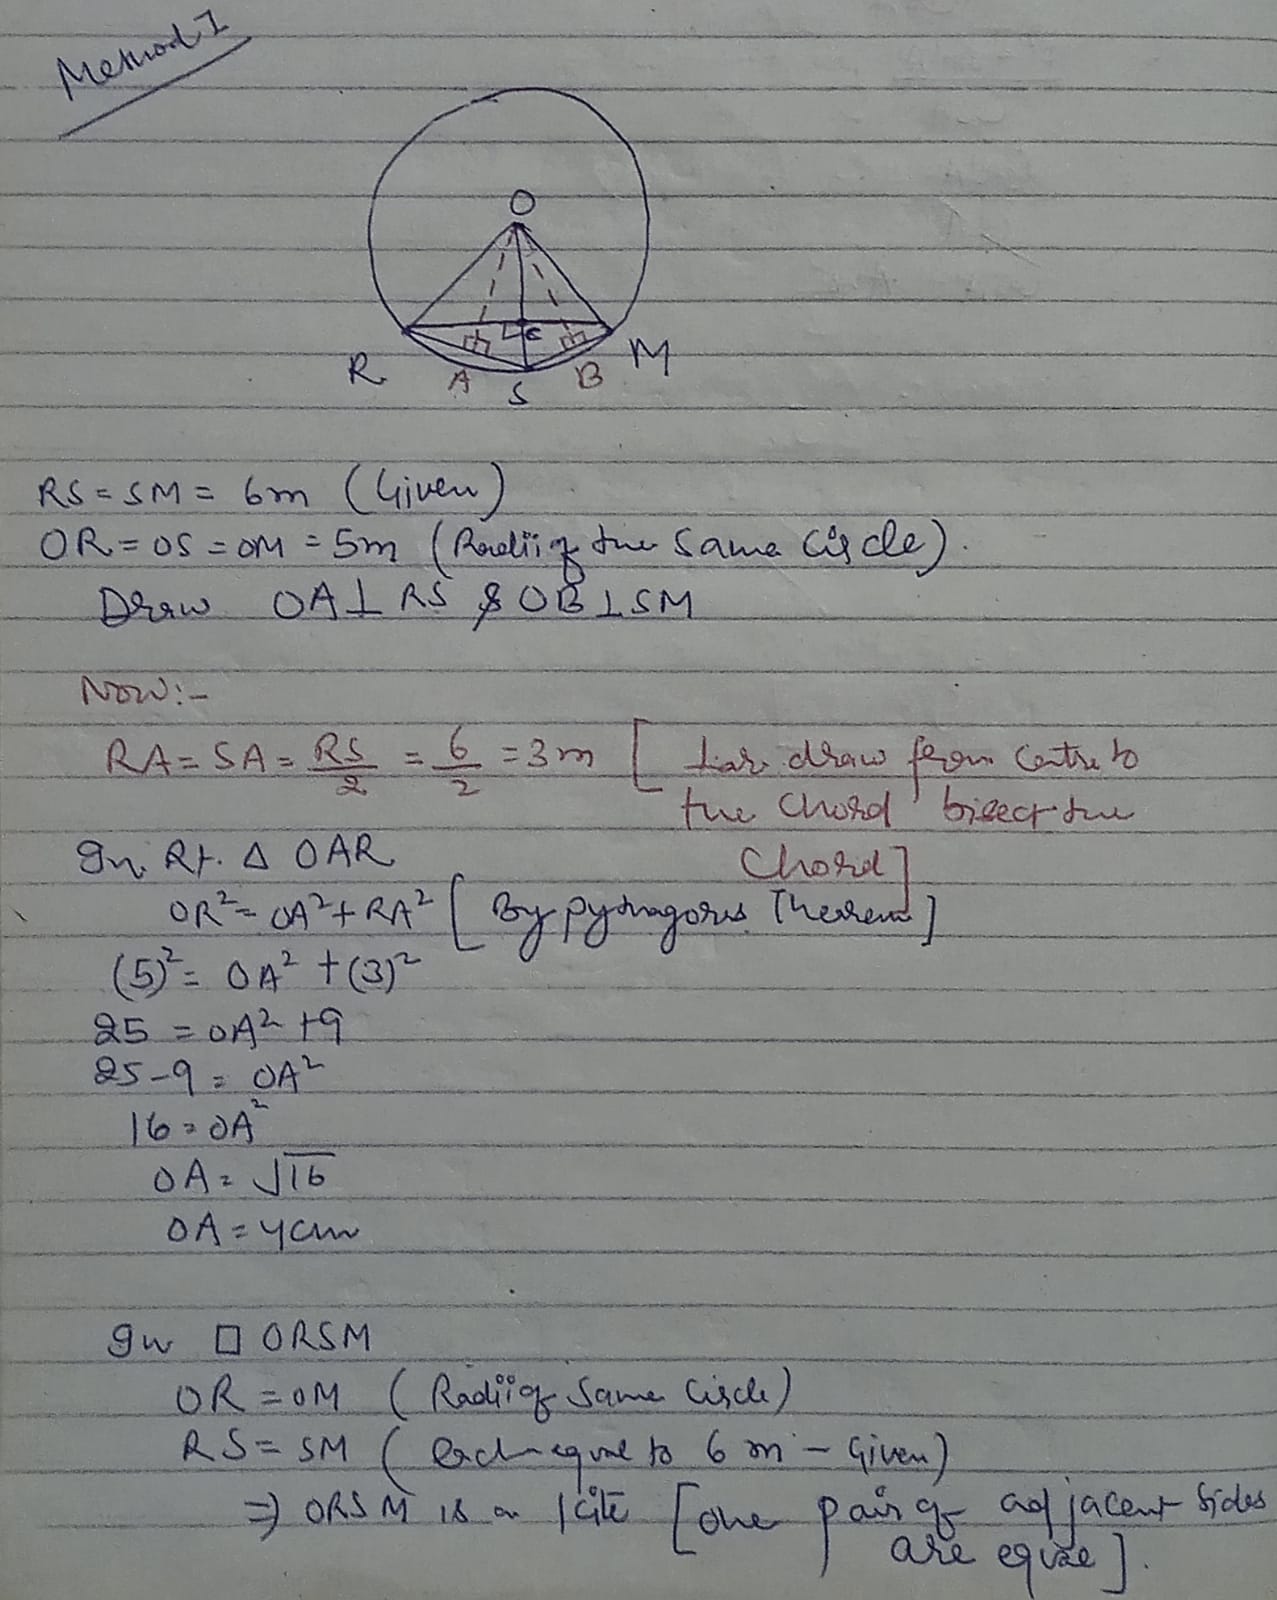 Method 1
O
E
R A S B M
RS = SM = 6m (Given)
OR = OS = OM = 5m (Radii of the same circle).
Draw OA ⊥ RS & OB ⊥ SM
Now:-
RA = SA = RS/2 = 6/2 = 3m [ ⊥ar draw from centre to
the chord bisect the
chord]
In Rt. Δ OAR
OR² = OA² + RA² [By pythagorus Theorem]
(5)² = OA² + (3)²
25 = OA² + 9
25 - 9 = OA²
16 = OA²
OA = √16
OA = 4cm
In □ ORSM
OR = OM (Radii of same circle)
RS = SM (each equal to 6 m - Given)
⇒ ORSM is a kite [one pair of adjacent sides
are equal].